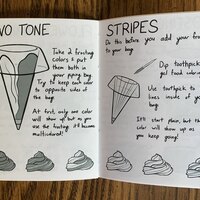 WO TONE
Take 2 frosting
colors & put
them both in
your piping bag.
Try to keep each color
to opposite sides of
the bag.
At first, only one color
will show up but as you
use the frosting it'll become
multicolored!
STRIPES
Do this before you add your fro
to your bag.
Dip toothpick
gel food colorin
Use toothpick to
lines inside of yo
bag
It'll start plain, but th
color will show up as
you keep going!